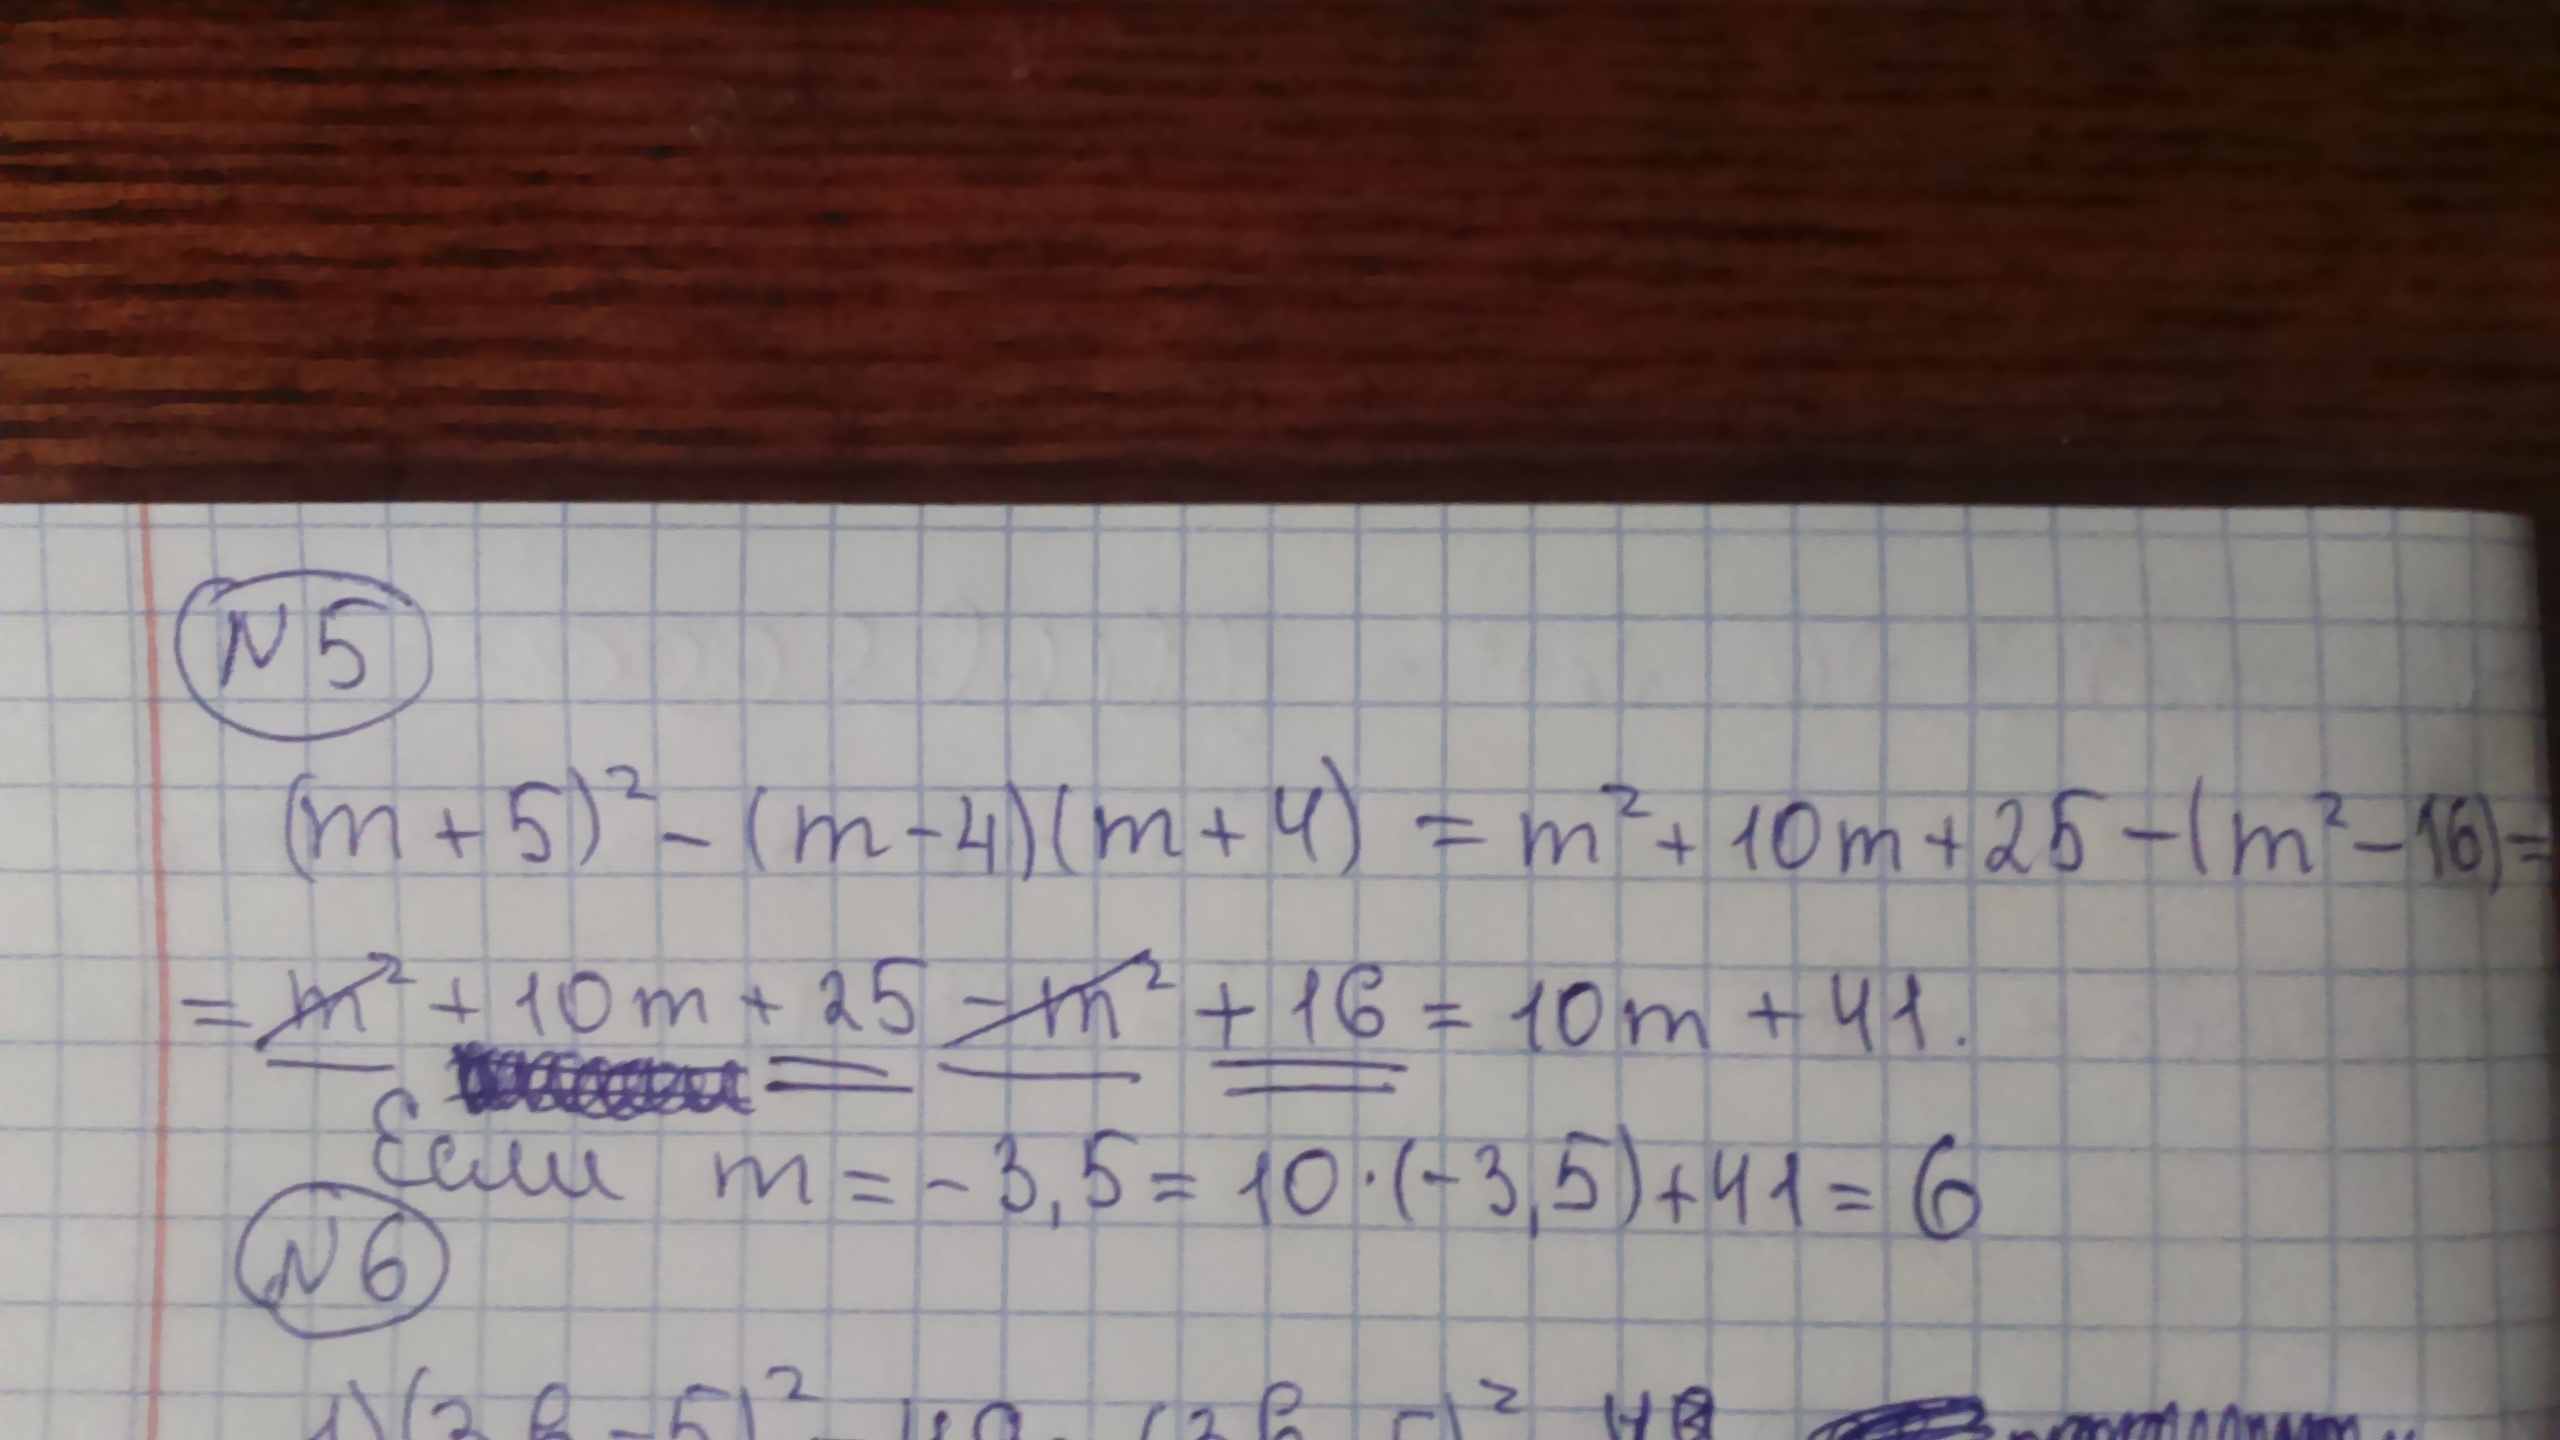 N 5
(m + 5)² - (m - 4)(m + 4) = m² + 10m + 25 - (m² - 16) =
= m² + 10m + 25 - m² + 16 = 10m + 41.
Если m = - 3,5 = 10 · (-3,5) + 41 = 6
N 6
1) (3b - 5)² - 49